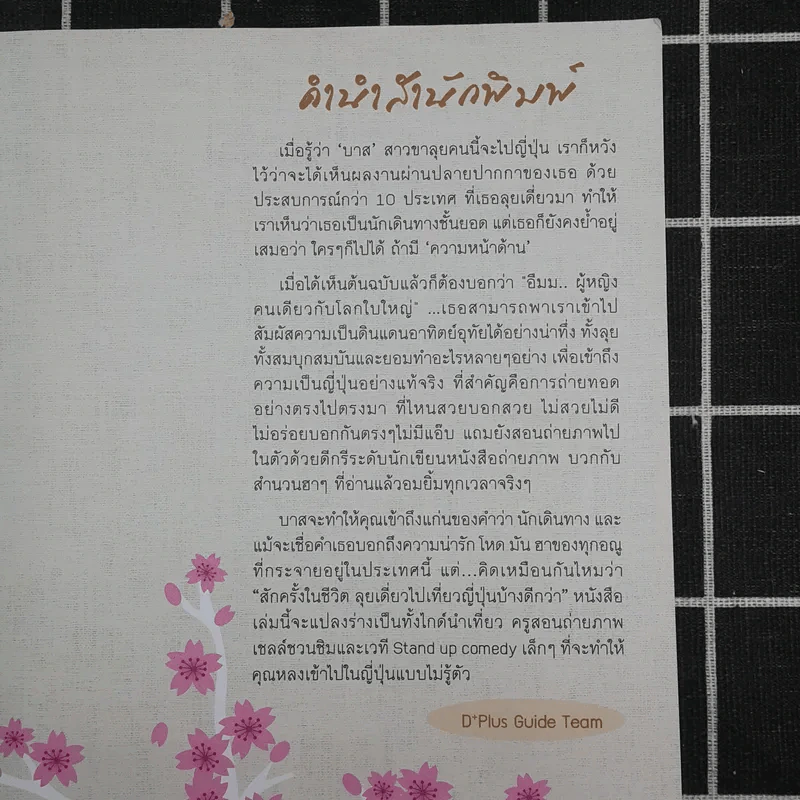 คำนำสำนักพิมพ์
เมื่อรู้ว่า ‘บาส’ สาวขาลุยคนนี้จะไปญี่ปุ่น เราก็หวัง
ไว้ว่าจะได้เห็นผลงานผ่านปลายปากกาของเธอ ด้วย
ประสบการณ์กว่า 10 ประเทศ ที่เธอลุยเดี่ยวมา ทำให้
เราเห็นว่าเธอเป็นนักเดินทางชั้นยอด แต่เธอก็ยังคงย้ำอยู่
เสมอว่า ใครๆก็ไปได้ ถ้ามี ‘ความหน้าด้าน’
เมื่อได้เห็นต้นฉบับแล้วก็ต้องบอกว่า "อืมม.. ผู้หญิง
คนเดียวกับโลกใบใหญ่" ...เธอสามารถพาเราเข้าไป
สัมผัสความเป็นดินแดนอาทิตย์อุทัยได้อย่างน่าทึ่ง ทั้งลุย
ทั้งสมบุกสมบันและยอมทำอะไรหลายๆอย่าง เพื่อเข้าถึง
ความเป็นญี่ปุ่นอย่างแท้จริง ที่สำคัญคือการถ่ายทอด
อย่างตรงไปตรงมา ที่ไหนสวยบอกสวย ไม่สวยไม่ดี
ไม่อร่อยบอกกันตรงๆไม่มีแอ๊บ แถมยังสอนถ่ายภาพไป
ในตัวด้วยดีกรีระดับนักเขียนหนังสือถ่ายภาพ บวกกับ
สำนวนฮาๆ ที่อ่านแล้วอมยิ้มทุกเวลาจริงๆ
บาสจะทำให้คุณเข้าถึงแก่นของคำว่า นักเดินทาง และ
แม้จะเชื่อคำเธอบอกถึงความน่ารัก โหด มัน ฮาของทุกอณู
ที่กระจายอยู่ในประเทศนี้ แต่...คิดเหมือนกันไหมว่า
“สักครั้งในชีวิต ลุยเดี่ยวไปเที่ยวญี่ปุ่นบ้างดีกว่า” หนังสือ
เล่มนี้จะแปลงร่างเป็นทั้งไกด์นำเที่ยว ครูสอนถ่ายภาพ
เชลล์ชวนชิมและเวที Stand up comedy เล็กๆ ที่จะทำให้
คุณหลงเข้าไปในญี่ปุ่นแบบไม่รู้ตัว
D⁺Plus Guide Team